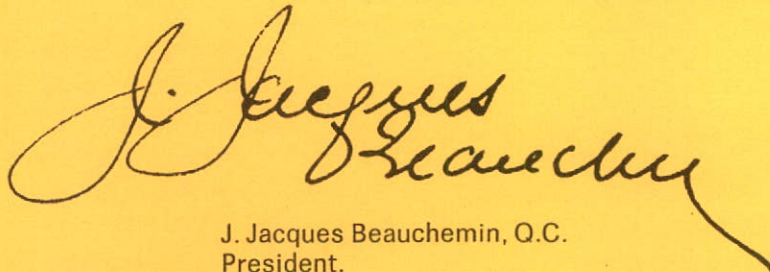 J. Jacques
Beauchemin
J. Jacques Beauchemin, Q.C.
President.